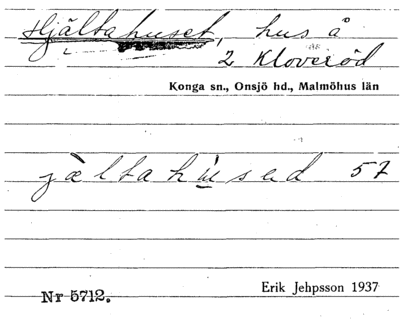 Hjältahuset, hus å
2 Kloveröd
Konga sn., Onsjö hd., Malmöhus län
jæ̀ltahù̲sed 57
Nr 5712.
Erik Jehpsson 1937